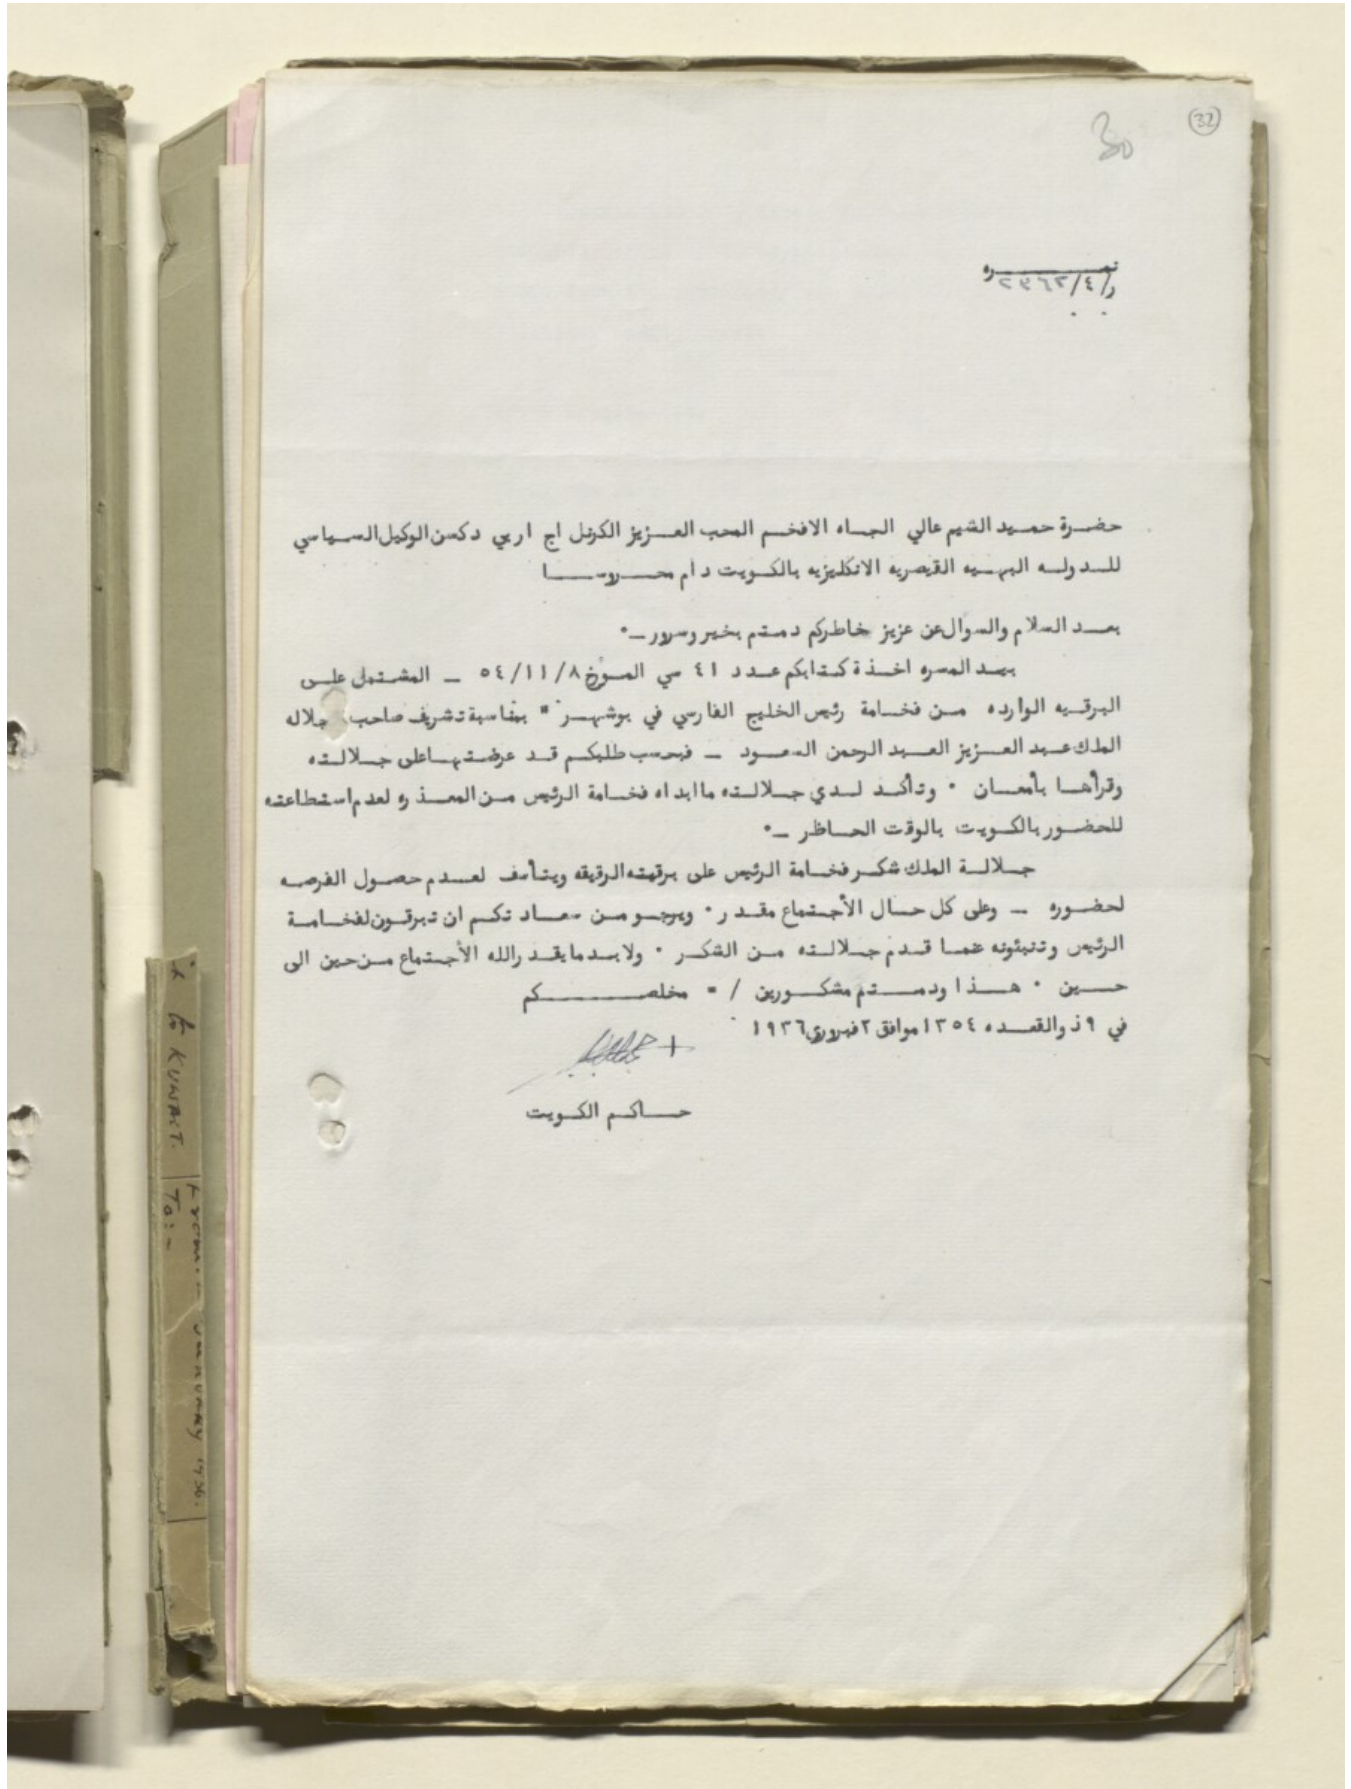 32
30
نمره
ر/٤/٢٣٦٢
حضرة حميد الشيم عالي الجاه الافخم المحب العزيز الكرنل اج اربي دكسن الوكيل السياسي
للدوله البهيه القيصريه الانكليزيه بالكويت دام محروسا
بعد السلام والسوال عن عزيز خاطركم دمتم بخير وسرور –٠
بيد المسره اخذة كتابكم عدد ٤١ سي المورخ ٥٤/١١/٨ – المشتمل على
البرقيه الوارده من فخامة رئيس الخليج الفارسي في بوشهر " بمناسبة تشريف صاحب جلاله
الملك عبد العزيز العبد الرحمن السعود – فبحسب طلبكم قد عرضتها على جلالته
وقرأها بأمعان ٠ وتأكد لدي جلالته ما ابداه فخامة الرئيس من المعذره لعدم استطاعته
للحضور بالكويت بالوقت الحاظر –٠
جلالة الملك شكر فخامة الرئيس على برقيته الرقيقه ويتأسف لعدم حصول الفرصه
لحضوره – وعلى كل حال الأجتماع مقدر ٠ ويرجو من سعادتكم ان تبرقون لفخامة
الرئيس وتنبئونه عما قدم جلالته من الشكر ٠ ولابد ما يقدر الله الأجتماع من حين الى
حين ٠ هذا ودمتم مشكورين / = مخلصكم
في ٩ ذوالقعده ١٣٥٤ موافق ٢ فبروري ١٩٣٦
حاكم الكويت
to KUWAIT.
From:- January 1936.
To:-